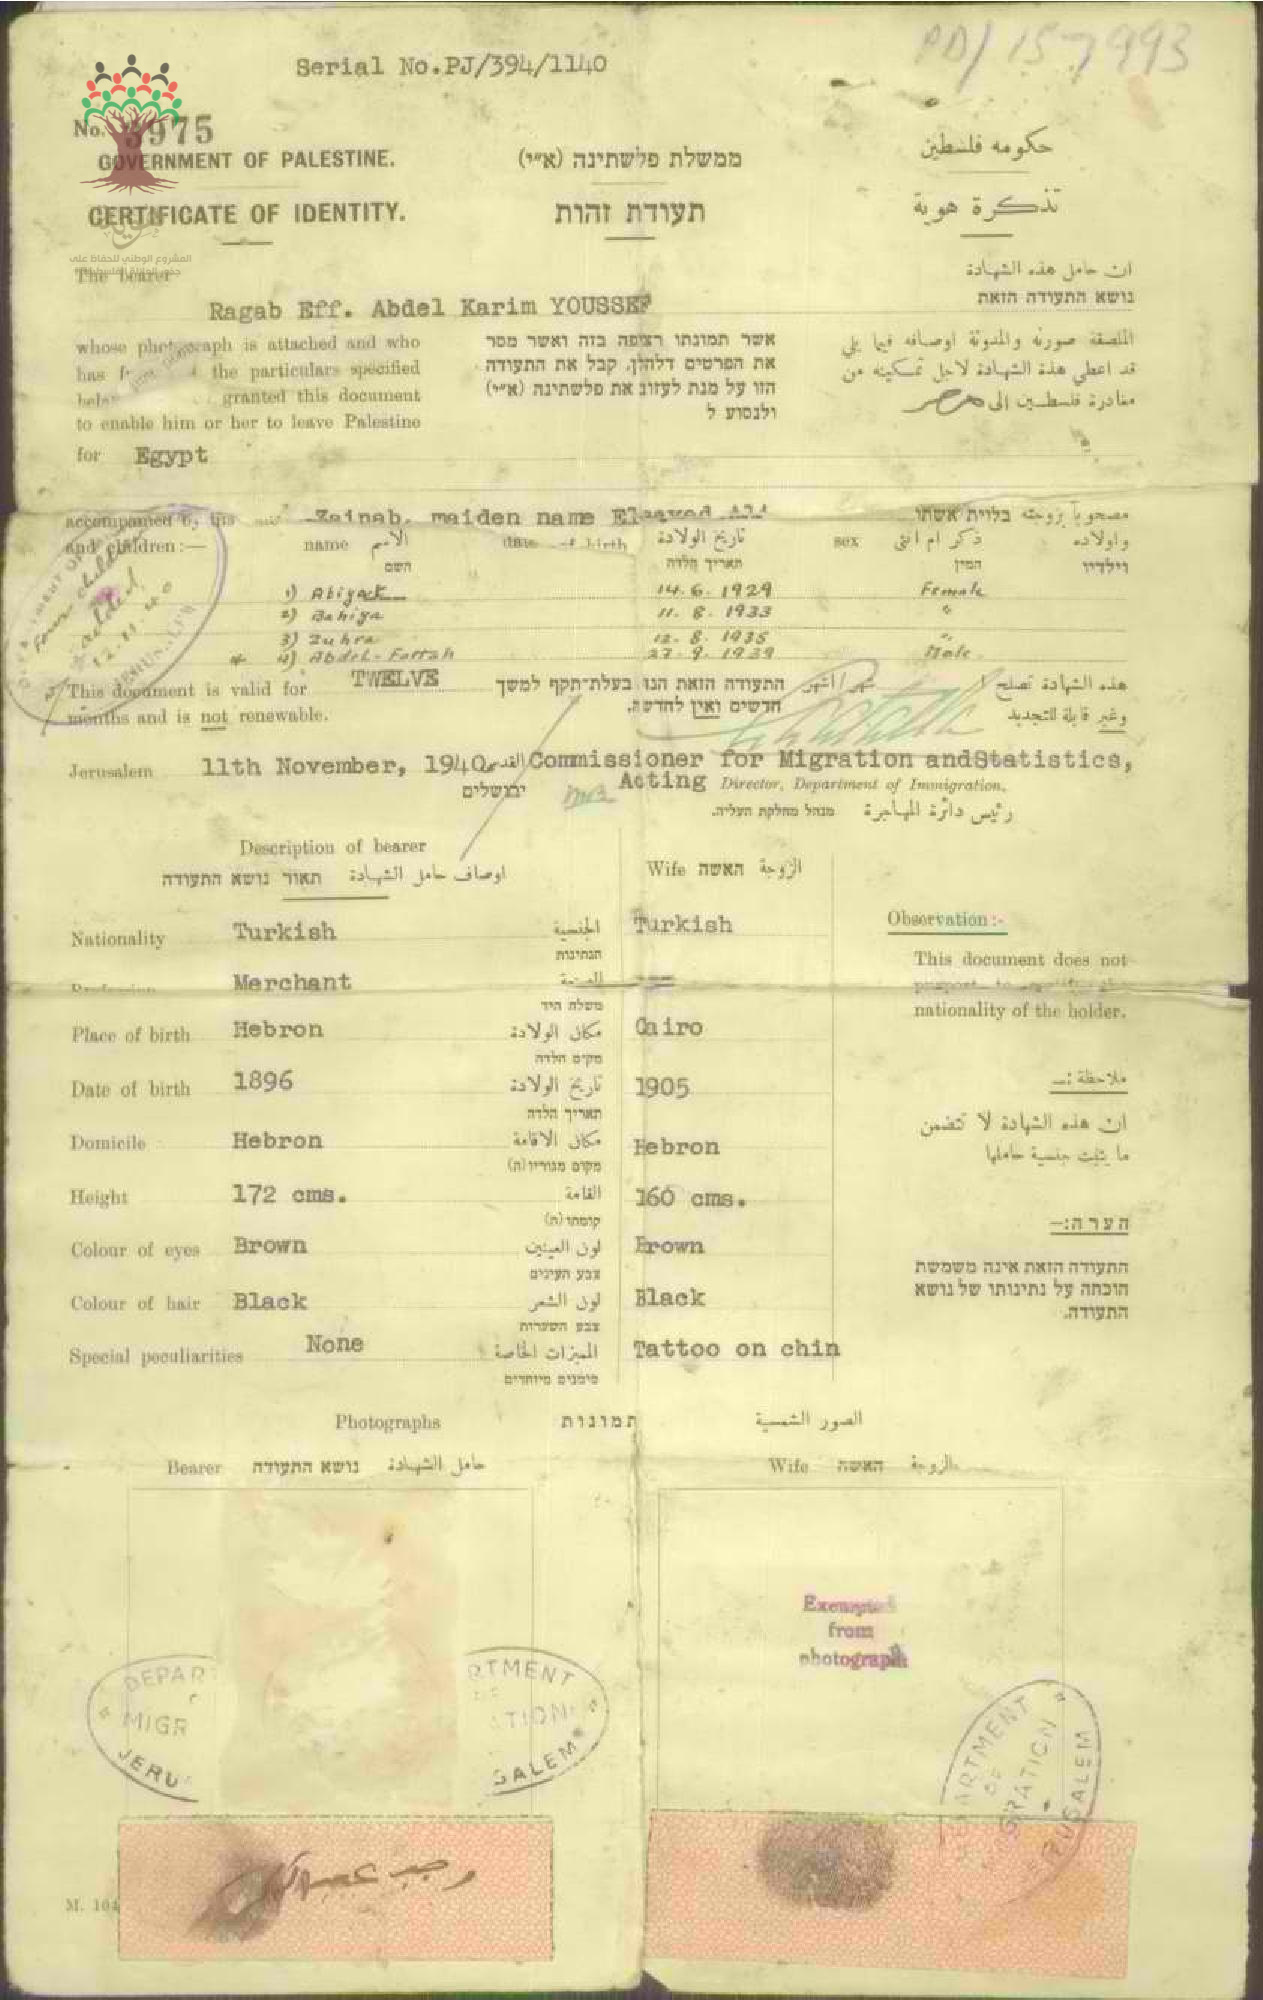 PD/ 15-7993
Serial No.PJ/394/1140
No. 3975
GOVERNMENT OF PALESTINE.
ממשלת פלשתינה (א״י)
حكومه فلسطين
CERTIFICATE OF IDENTITY.
תעודת זהות
تذكرة هوية
المشروع الوطني للحفاظ على
The bearer
ان حامل هذه الشهادة
נושא התעודה הזאת
Ragab Eff. Abdel Karim YOUSSEF
whose photograph is attached and who
has the particulars specified
granted this document
to enable him or her to leave Palestine
for Egypt
אשר תמונתו רצופה בזה ואשר מסר
את הפרטים דלהלן, קבל את התעודה
הזו על מנת לעזוב את פלשתינה (א״י)
ולנסוע ל
الملصقة صورته والمدونة اوصافه فيما يلي
قد اعطي هذه الشهادة لاجل تمكينه من
مغادرة فلسطين الى مصر
accompanied by his Zainab, maiden name Elsayed
مصحوباً بزوجته בלויית אשתו
and children:—
name الاسم
date of birth تاريخ الولادة
sex ذكر ام انثى
واولاده
השם
תאריך הלדה
המין
וילדיו
1) Abigak 14. 6. 1929 Female
2) Bahiga 11. 8. 1933 "
3) Zuhra 12. 8. 1935 "
4) Abdel-Fattah 27. 9. 1939 Male
four children
added
12.11.40
This document is valid for TWELVE
months and is not renewable.
התעודה הזאת הנו בעלת־תקף למשך
חדשים ואין לחדשה.
هذه الشهادة تصلح ل
وغير قابلة للتجديد
Jerusalem 11th November, 1940 القدس
ירושלים
Commissioner for Migration andStatistics,
Acting Director, Department of Immigration.
رئيس دائرة المهاجرة מנהל מחלקת העליה.
Description of bearer
اوصاف حامل الشهادة תאור נושא התעודה
Wife האשה الزوجة
Nationality Turkish الجنسية Turkish
הנתינות
Merchant
משלח היד
Place of birth Hebron مكان الولادة Cairo
מקום הלדה
Date of birth 1896 تاريخ الولادة 1905
תאריך הלדה
Domicile Hebron مكان الاقامة Hebron
מקום מגוריו(ה)
Height 172 cms. القامة 160 cms.
קומתו(ה)
Colour of eyes Brown لون العينين Brown
צבע העינים
Colour of hair Black لون الشعر Black
צבע השערות
Special peculiarities None المميزات الخاصة Tattoo on chin
סימנים מיוחדים
Observation:-
This document does not
nationality of the holder.
ملاحظة:—
ان هذه الشهادة لا تتضمن
ما يثبت جنسية حاملها
הערה:—
התעודה הזאת אינה משמשת
הוכחה על נתינותו של נושא
התעודה.
Photographs תמונות الصور الشمسية
Bearer נושא התעודה حامل الشهادة
Wife האשה الزوجة
Exempted
from
photograph
DEPAR RTMENT
MIGR ATION
JERU SALEM
ARTMENT
OF
GRATION
RUSALEM
رجب عبد الكريم
M. 104